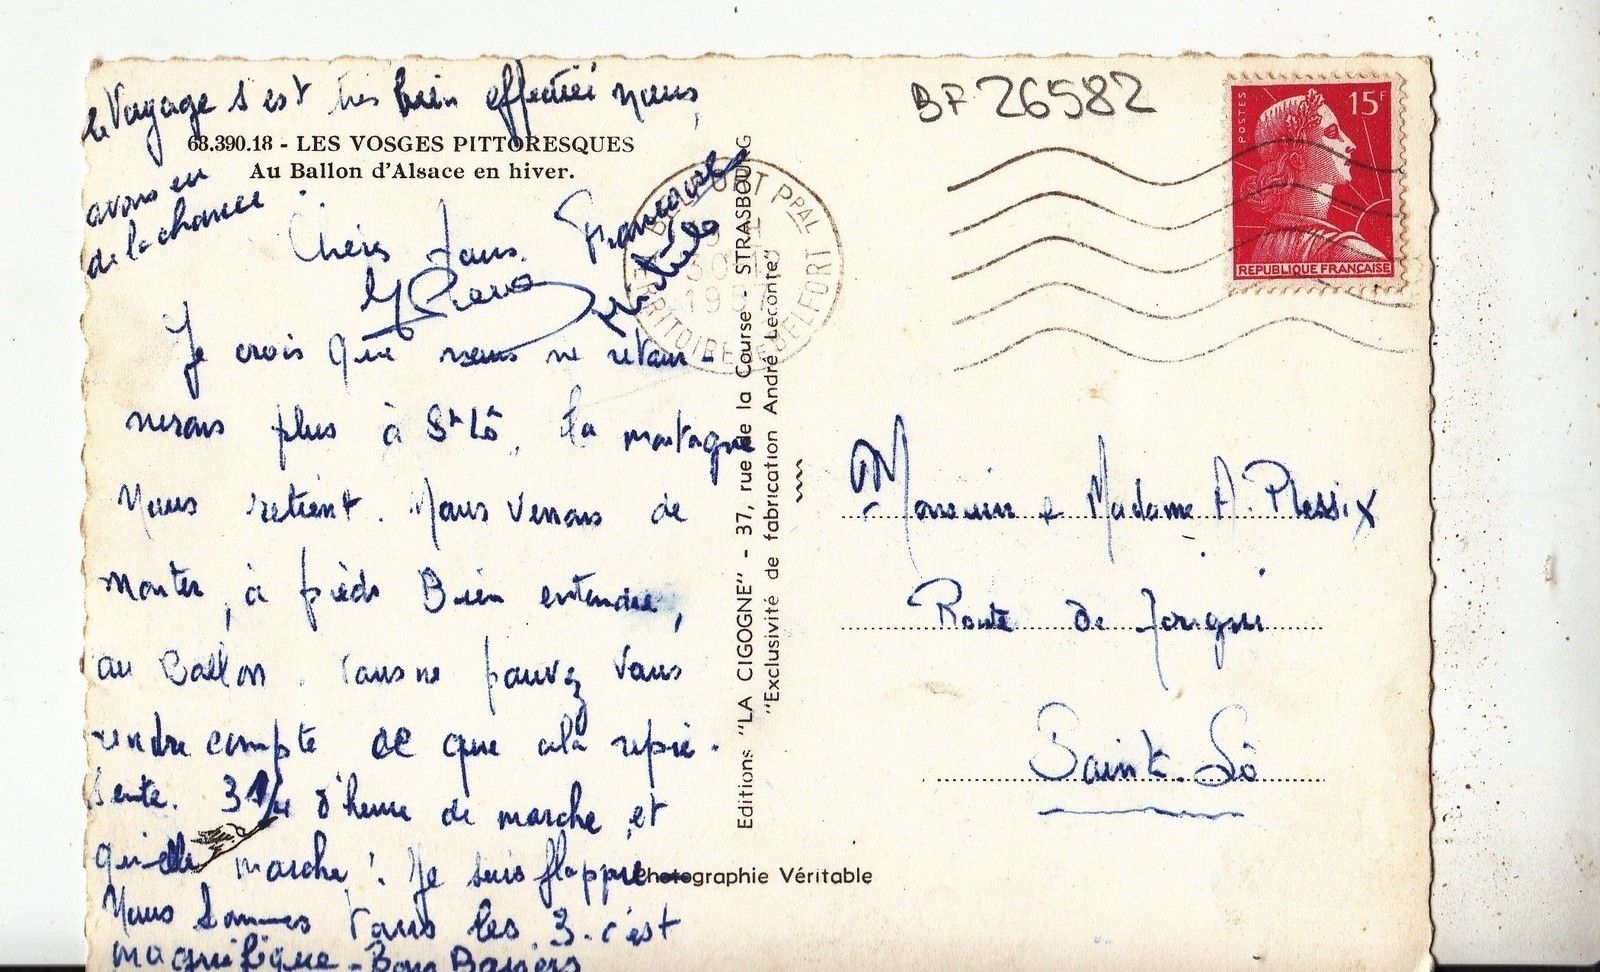 le Voyage s'est très bien effectué nous
68.390.18 - LES VOSGES PITTORESQUES
Au Ballon d'Alsace en hiver.
avons eu
de la chance.
Chers Tous.
Je crois que nous ne retour-
nerons plus à St Lô, la montagne
Nous retient. Nous venons de
monter, à pieds Bien entendue,
au Ballon. Vous ne pouvez Vous
rendre compte ce que cela repré-
sente. 3 d'heure de marche et
quelle marche! Je suis flappie
Nous sommes Tous les 3. c'est
magnifique - Bons Baisers
Editions "LA CIGOGNE" - 37, rue de la Course - STRASBOURG
"Exclusivité de fabrication André Leconte"
Photographie Véritable
BF 26582
BELFORT PPAL
30
19
TERRITOIRE DE BELFORT
POSTES
15F
REPUBLIQUE FRANCAISE
Monsieur e Madame A. Plessix
Route de
Saint-Lô